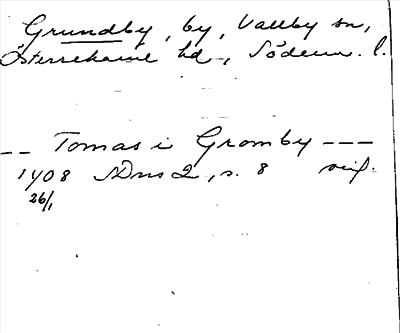 Grundby, by, Vallby sn,
Österrekarne hd, Söderm. l.
-- Tomas i Gromby ---
1408 SDns 2, s. 8 sigf.
26/1